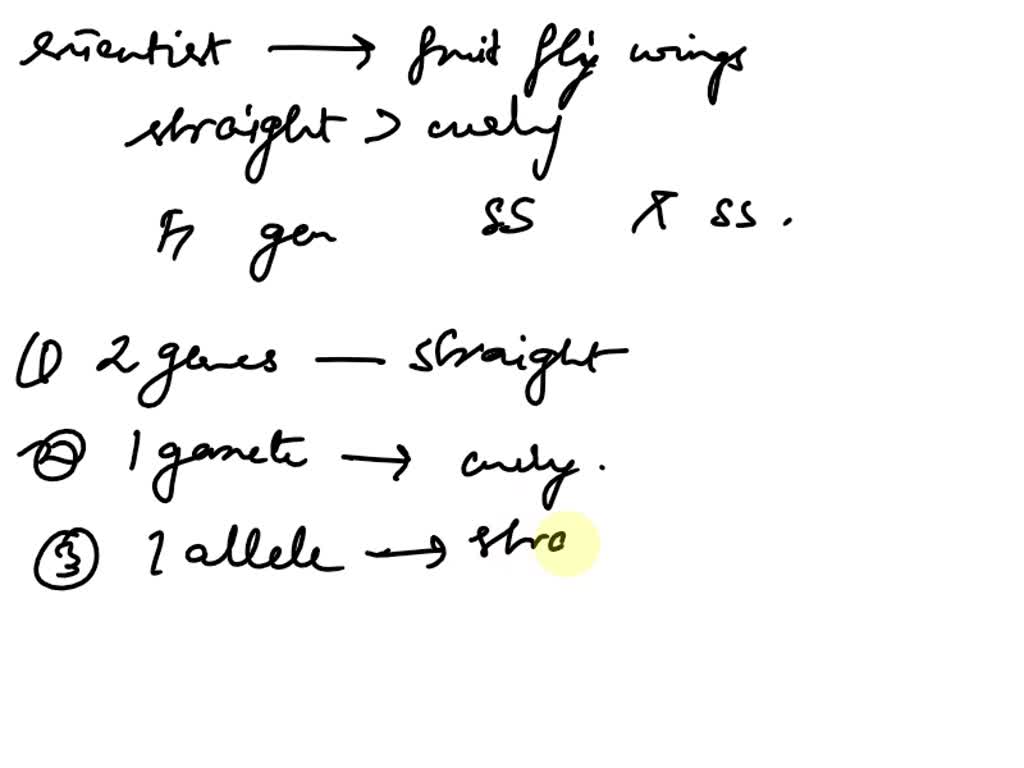 scientist → fruit fly wings
straight > curly
F1 gen SS X ss .
① 2 genes — straight
② 1 gamete → curly .
③ 1 allele → stra